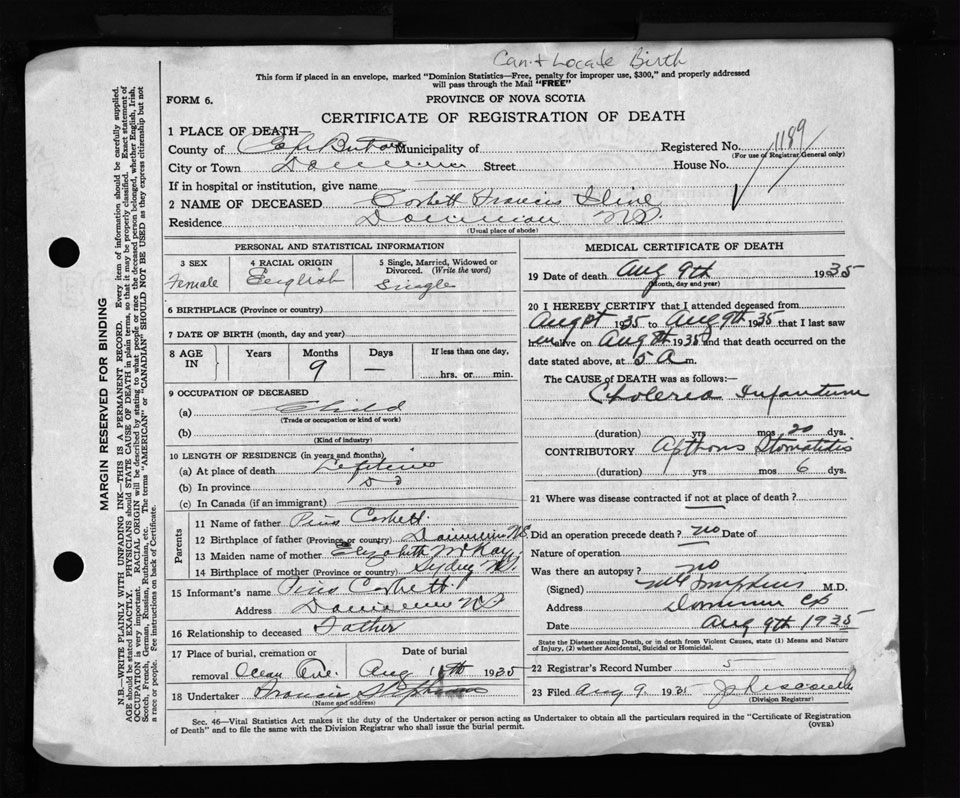 Can't Locate Birth
This form if placed in an envelope, marked "Dominion Statistics—Free, penalty for improper use, $300," and properly addressed
will pass through the Mail "FREE"
FORM 6.
PROVINCE OF NOVA SCOTIA
CERTIFICATE OF REGISTRATION OF DEATH
1 PLACE OF DEATH—
County of Cape Breton Municipality of Registered No. 1189
(For use of Registrar General only)
City or Town Dominion Street House No.
If in hospital or institution, give name
2 NAME OF DECEASED Corbett Francis
Residence Dominion N.S.
(Usual place of abode)
PERSONAL AND STATISTICAL INFORMATION
3 SEX Female
4 RACIAL ORIGIN English
5 Single, Married, Widowed or Divorced. (Write the word) Single
6 BIRTHPLACE (Province or country)
7 DATE OF BIRTH (month, day and year)
8 AGE IN Years Months 9 Days — If less than one day, hrs. or min.
9 OCCUPATION OF DECEASED
(a) Child
(Trade or occupation or kind of work)
(b)
(Kind of industry)
10 LENGTH OF RESIDENCE (in years and months)
(a) At place of death Lifetime
(b) In province
(c) In Canada (if an immigrant)
Parents
11 Name of father Pius Corbett
12 Birthplace of father (Province or country) Dominion N.S.
13 Maiden name of mother Elizabeth McKay
14 Birthplace of mother (Province or country) Sydney N.S.
15 Informant's name Pius Corbett
Address Dominion N.S.
16 Relationship to deceased Father
17 Place of burial, cremation or removal Ocean Ave. Date of burial Aug 11th 1935
18 Undertaker Francis Stephenson
(Name and address)
MEDICAL CERTIFICATE OF DEATH
19 Date of death Aug 9th 1935
(Month, day and year)
20 I HEREBY CERTIFY that I attended deceased from
Aug 1935 to Aug 9th 1935 that I last saw
h alive on Aug 8th 1935 and that death occurred on the
date stated above, at 5 a m.
The CAUSE of DEATH was as follows:—
Cholera Infantum
(duration) yrs mos 20 dys.
CONTRIBUTORY Apthous Stomatitis
(duration) yrs mos 6 dys.
21 Where was disease contracted if not at place of death?
Did an operation precede death? no Date of
Nature of operation
Was there an autopsy? no
(Signed) M.D.
Address Dominion CB
Date Aug 9th 1935
State the Disease causing Death, or in death from Violent Causes, state (1) Means and Nature
of Injury, (2) whether Accidental, Suicidal or Homicidal.
22 Registrar's Record Number 5
23 Filed Aug 9 1935
(Division Registrar)
Sec. 46—Vital Statistics Act makes it the duty of the Undertaker or person acting as Undertaker to obtain all the particulars required in the "Certificate of Registration
of Death" and to file the same with the Division Registrar who shall issue the burial permit.
(OVER)
MARGIN RESERVED FOR BINDING
N.B.—WRITE PLAINLY WITH UNFADING INK—THIS IS A PERMANENT RECORD. Every item of information should be carefully supplied.
AGE should be stated EXACTLY. PHYSICIANS should STATE CAUSE OF DEATH in plain terms, so that it may be properly classified. Exact statement of
OCCUPATION is very important. RACIAL ORIGIN will be described by stating to what people or race the deceased person belonged, whether English, Irish,
Scotch, French, German, Russian, Ruthenian, etc. The terms "AMERICAN" or "CANADIAN" SHOULD NOT BE USED as they express citizenship but not
a race or people. See instructions on back of Certificate.